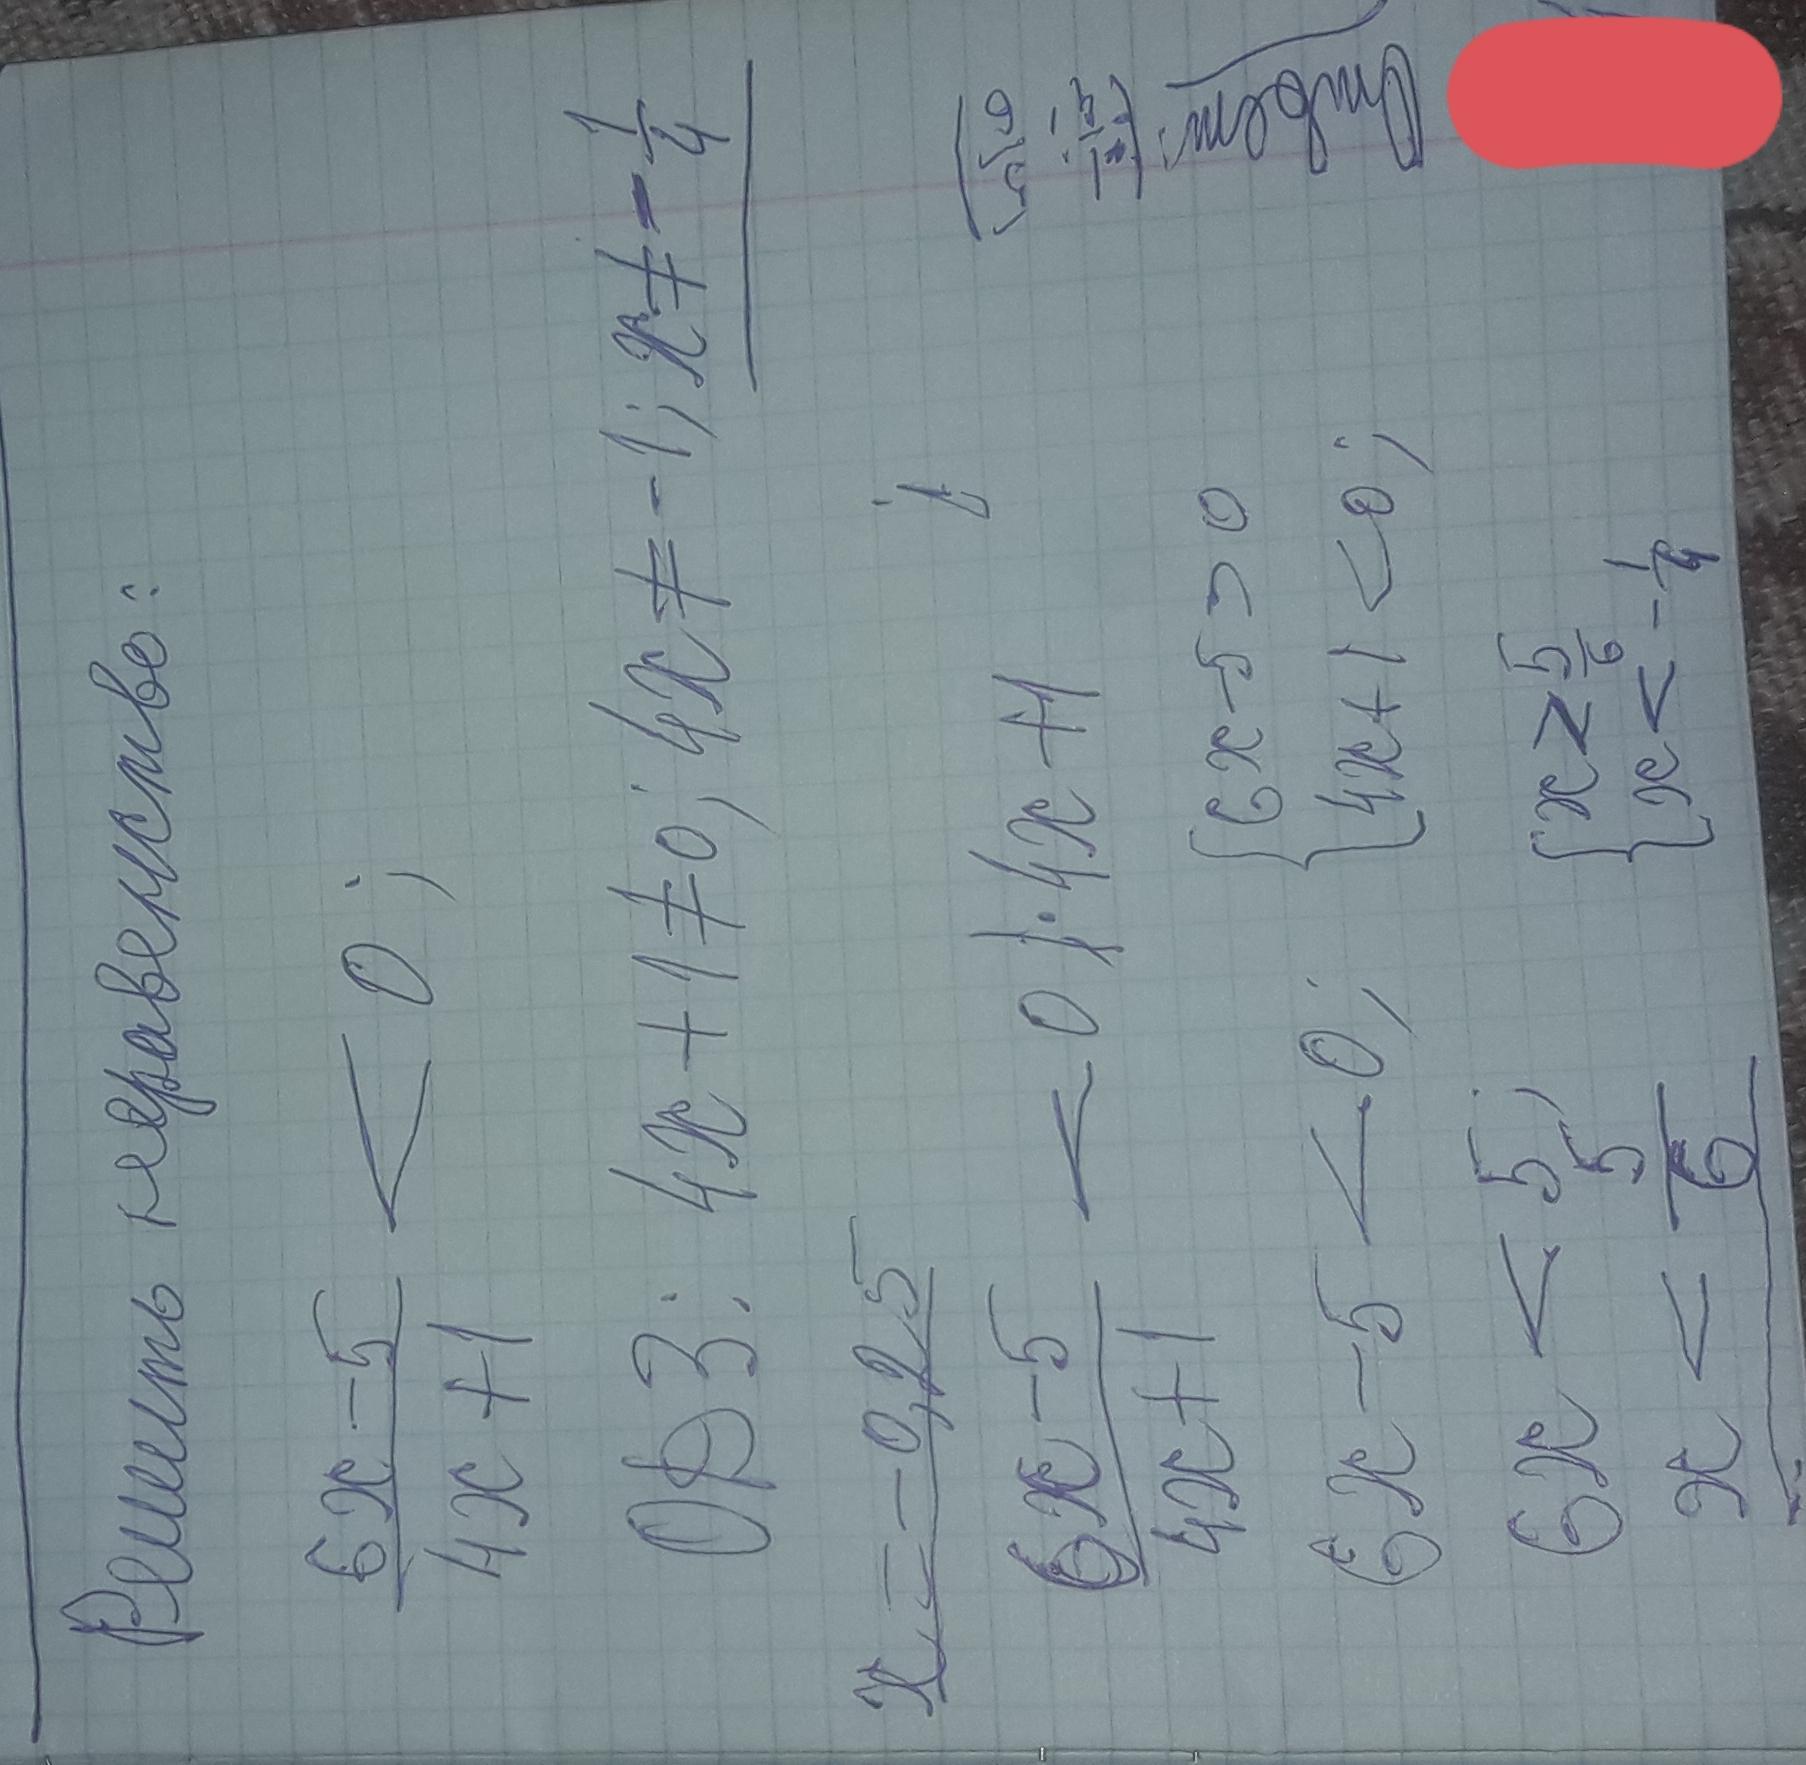 Решить неравенство:
(6x-5)/(4x+1) < 0;
ОДЗ: 4x+1≠0; 4x≠-1; x≠-1/4
x = -0,25
(6x-5)/(4x+1) < 0 | · 4x+1
6x-5<0; {6x-5>0
{4x+1<0;
6x<5; {x≥5/6
x < 5/6 {x<-1/4
Ответ: (-1/4; 5/6)